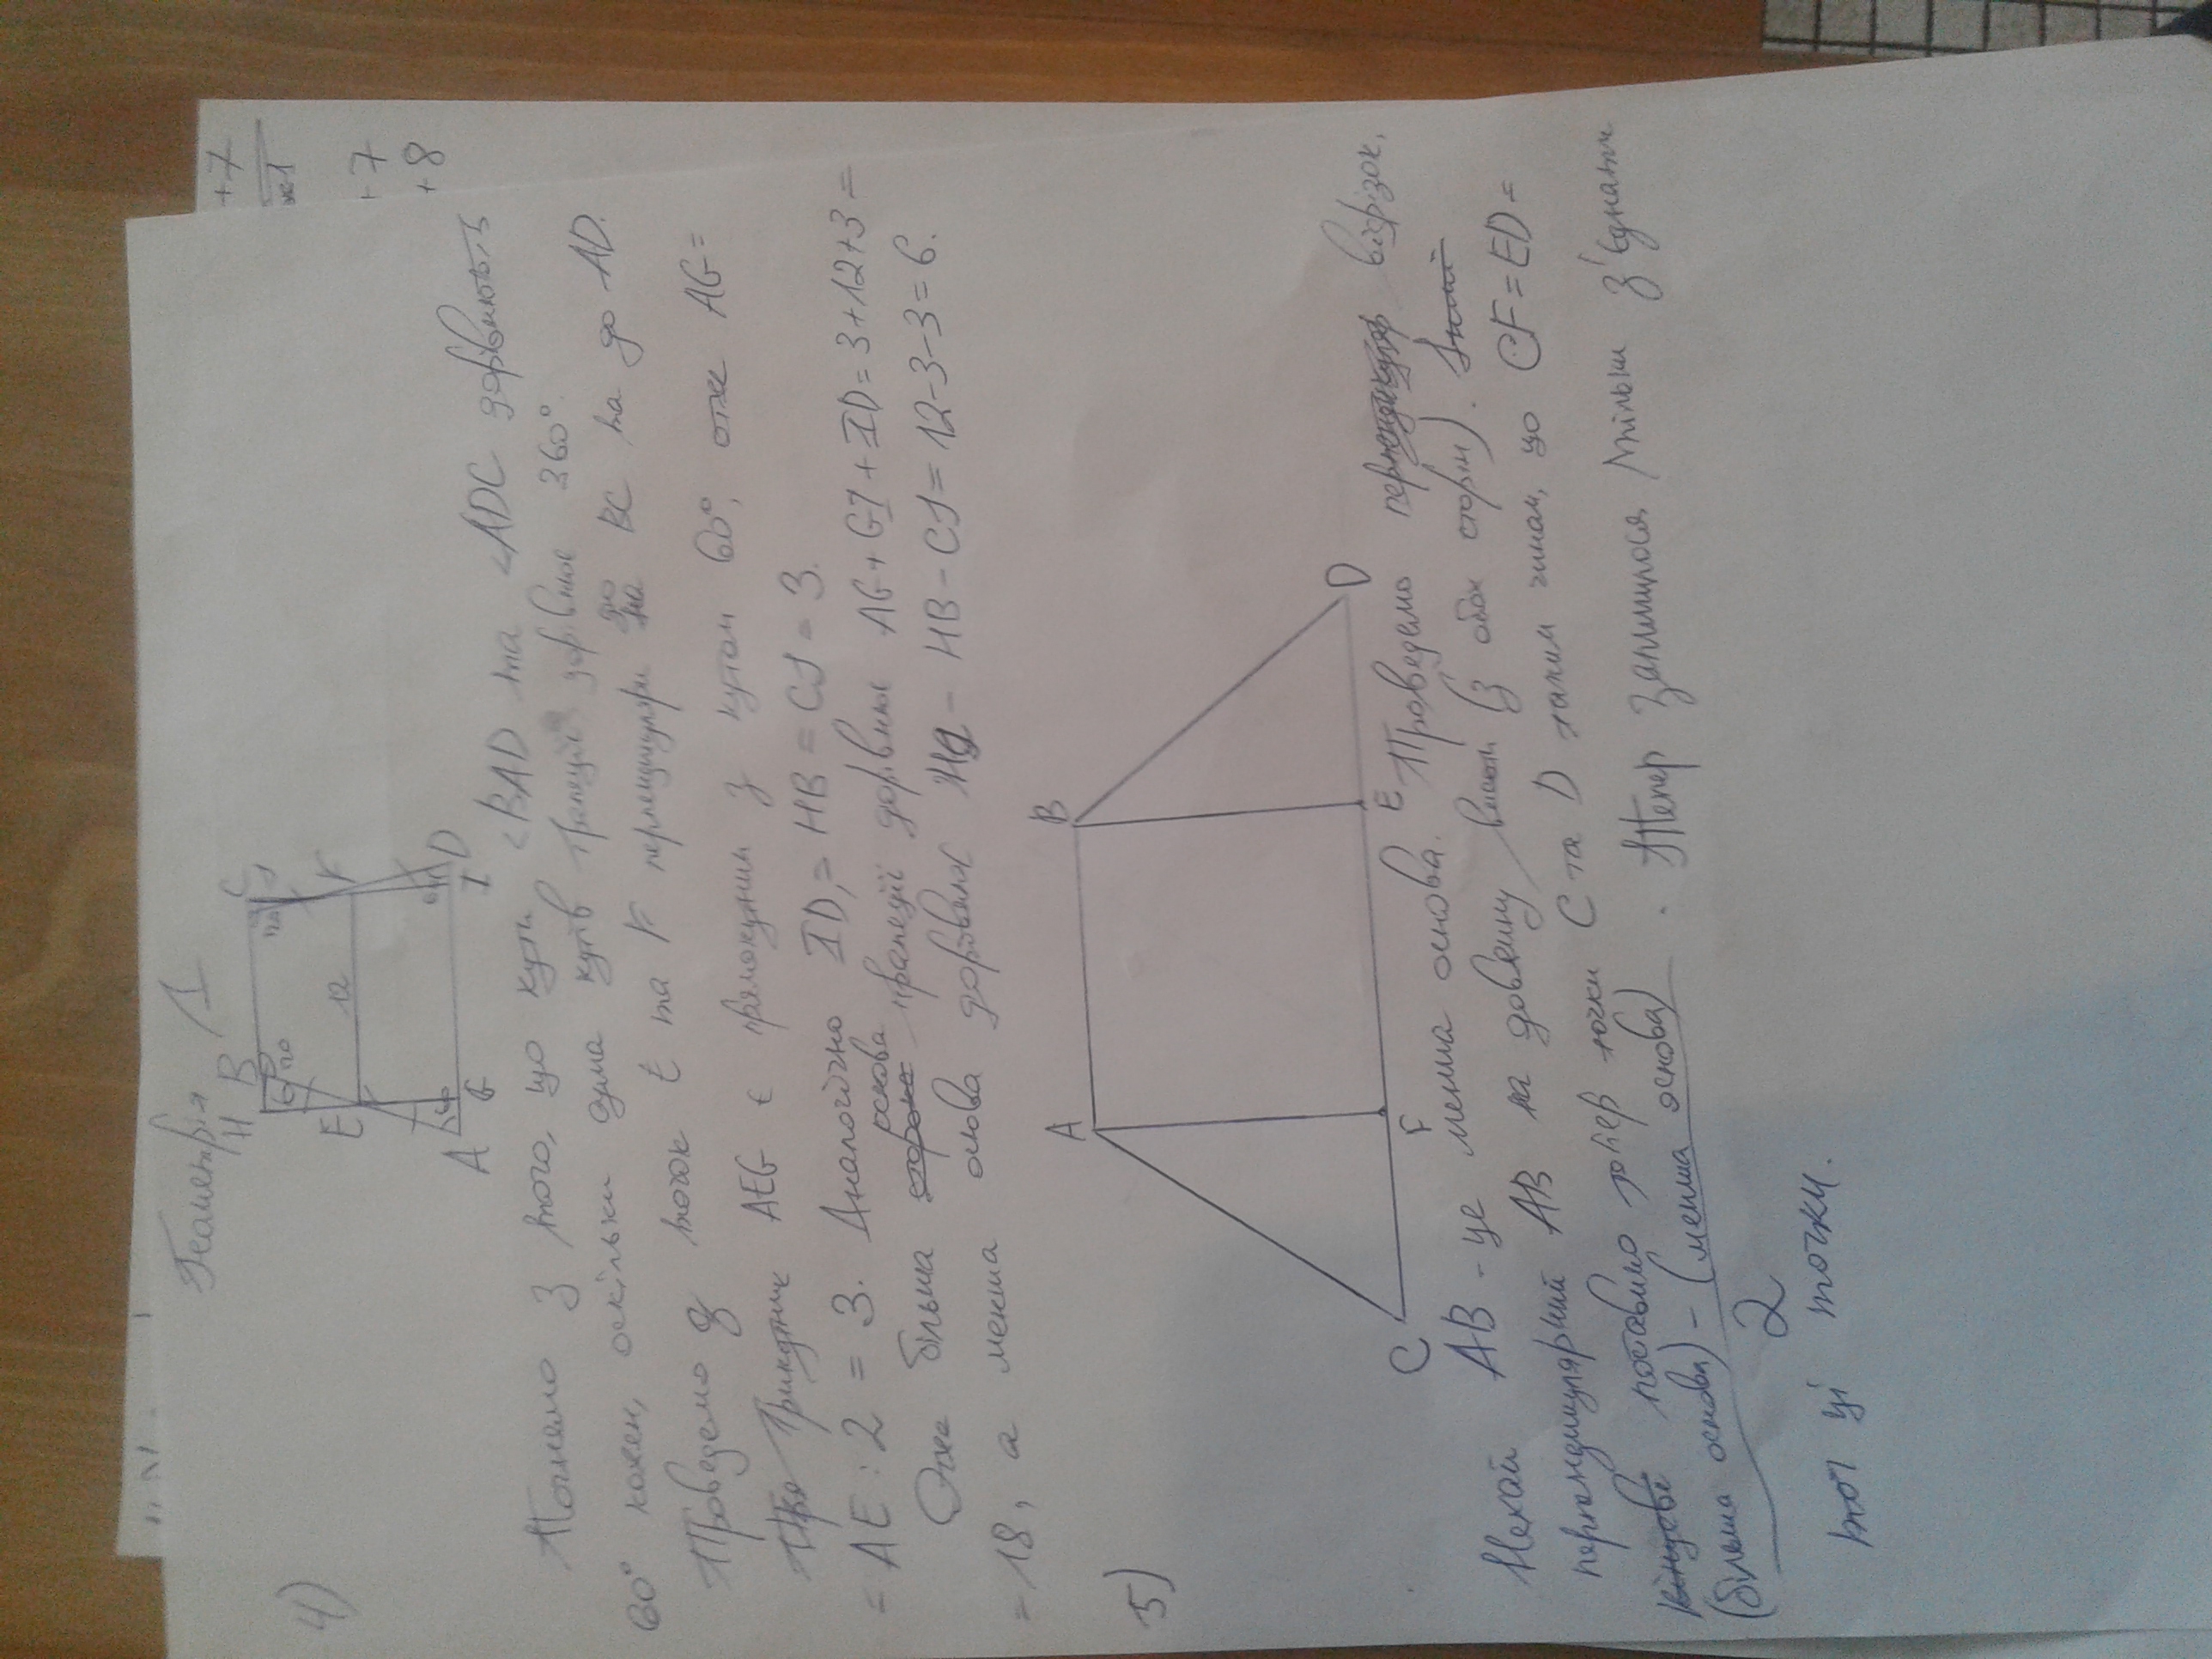 Геометрія 1
4)
H B C J
60 120 120
E 12 F
A 60 60 D
G I
Почнемо з того, що кути <BAD та <ADC дорівнюють
60° кожен, оскільки сума кутів трапеції дорівнює 360°.
Проведемо з точок E та F перпендикуляри до BC та до AD.
Трикутник AEG є прямокутним з кутом 60°, отже AG=
= AE : 2 = 3. Аналогічно ID = HB = CJ = 3.
Отже більша основа трапеції дорівнює AG + GI + ID = 3+12+3 =
= 18, а менша основа дорівнює HJ - HB - CJ = 12-3-3 = 6.
5)
A B
C F E D
Нехай AB - це менша основа. Проведемо відрізок,
перпендикулярний AB на довжину висоти (з обох сторін).
поставимо тепер точки C та D таким чином, що CF = ED =
(більша основа) - (менша основа)
2
. Тепер залишилося тільки з'єднати
ці точки.
+7
x-1
+7
+8